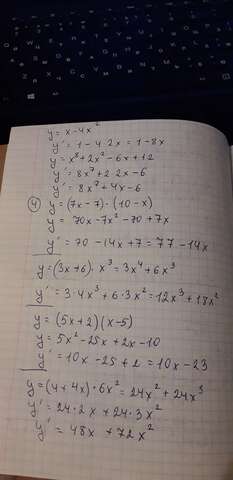 y = x - 4x²
y' = 1 - 4·2x = 1 - 8x
y = x⁸ + 2x² - 6x + 12
y' = 8x⁷ + 2·2x - 6
y' = 8x⁷ + 4x - 6
④ y = (7x - 7)·(10 - x)
y = 70x - 7x² - 70 + 7x
y' = 70 - 14x + 7 = 77 - 14x
y = (3x + 6)·x³ = 3x⁴ + 6x³
y' = 3·4x³ + 6·3x² = 12x³ + 18x²
y = (5x + 2)(x - 5)
y = 5x² - 25x + 2x - 10
y' = 10x - 25 + 2 = 10x - 23
y = (4 + 4x)·6x² = 24x² + 24x³
y' = 24·2x + 24·3x²
y' = 48x + 72x²